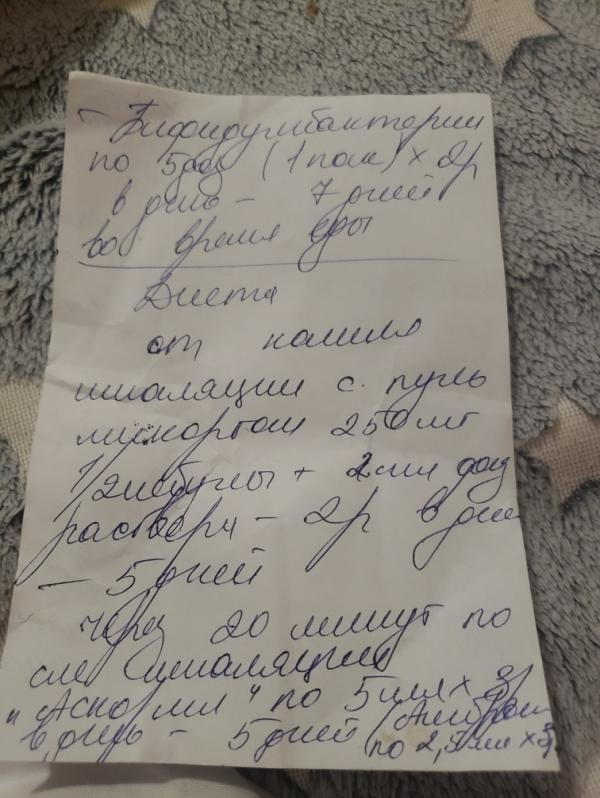 - Бифидумбактерин
по 5 доз (1 пак) х 2р
в день - 7 дней
во время еды
Диета
от кашля
ингаляции с пуль
микортом 250 мг
1/2 небулы + 2 мл физ
раствора - 2р в день
- 5 дней
через 20 минут по
сле ингаляции
"Аскорил" по 5 мл х
в день - 5 дней
по 2,5 мл х